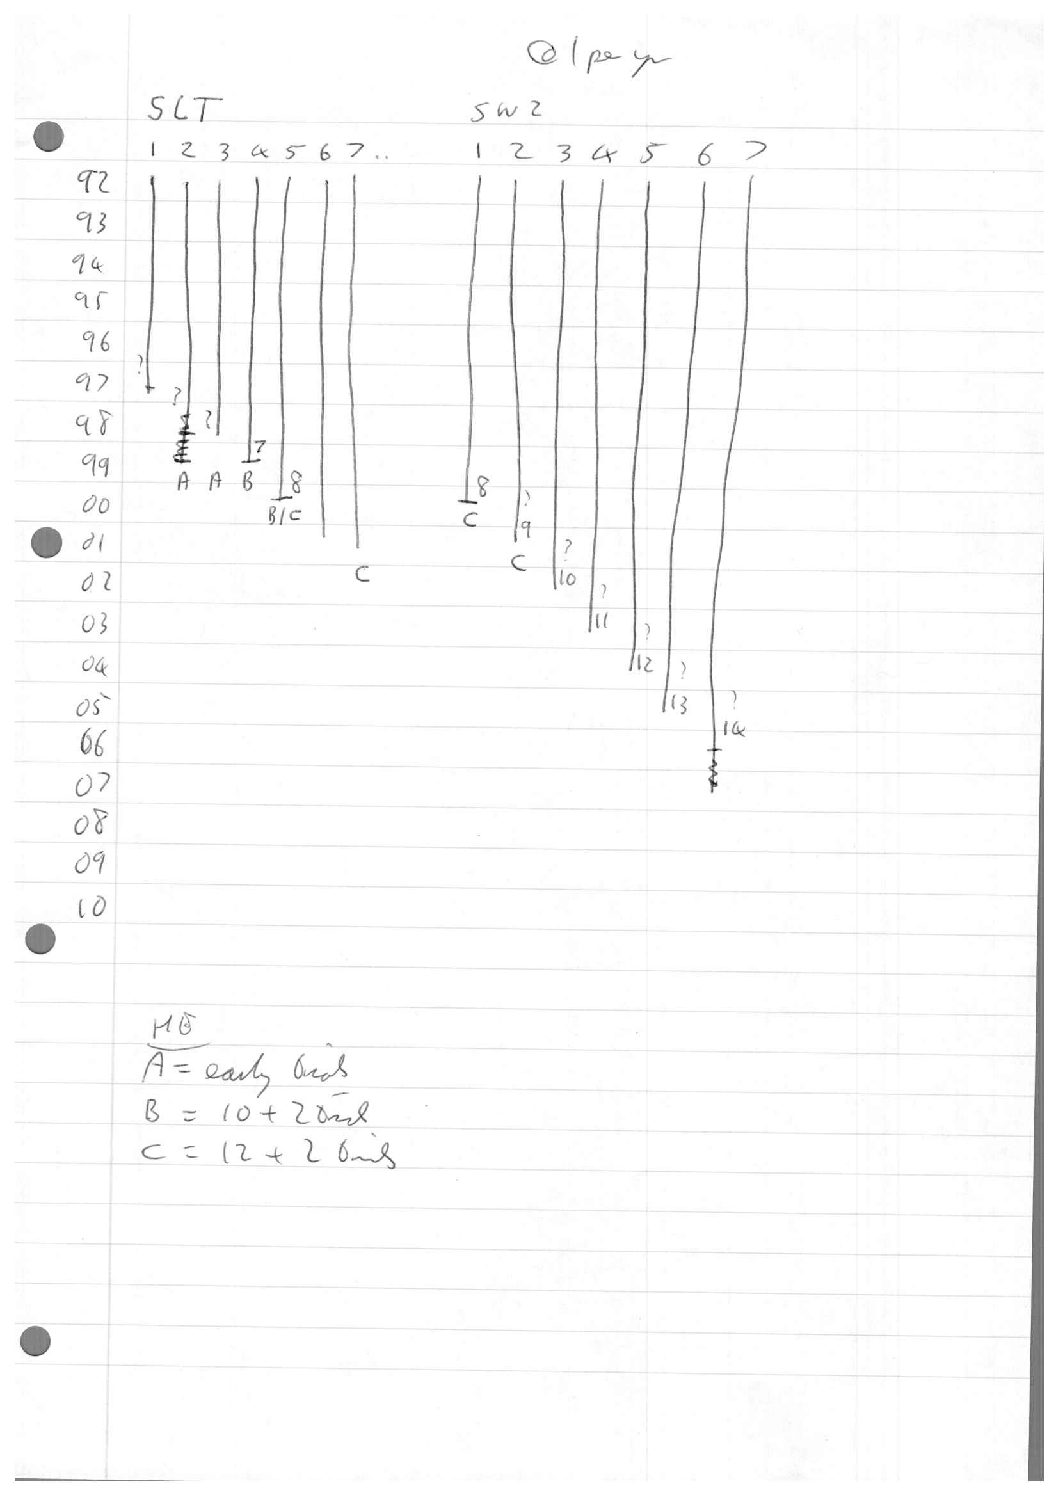 @ 1 per yr
SLT SW2
1 2 3 4 5 6 7.. 1 2 3 4 5 6 7
92
93
94
95
96
?
97 ?
98 ?
7
99
A A B 8 8 ?
00
B/C C 9
01 ?
C C 10
02 ?
11
03 ?
12
04 ?
13
05 ?
14
06
07
08
09
10
A = early
B = 10 + 2
C = 12 + 2